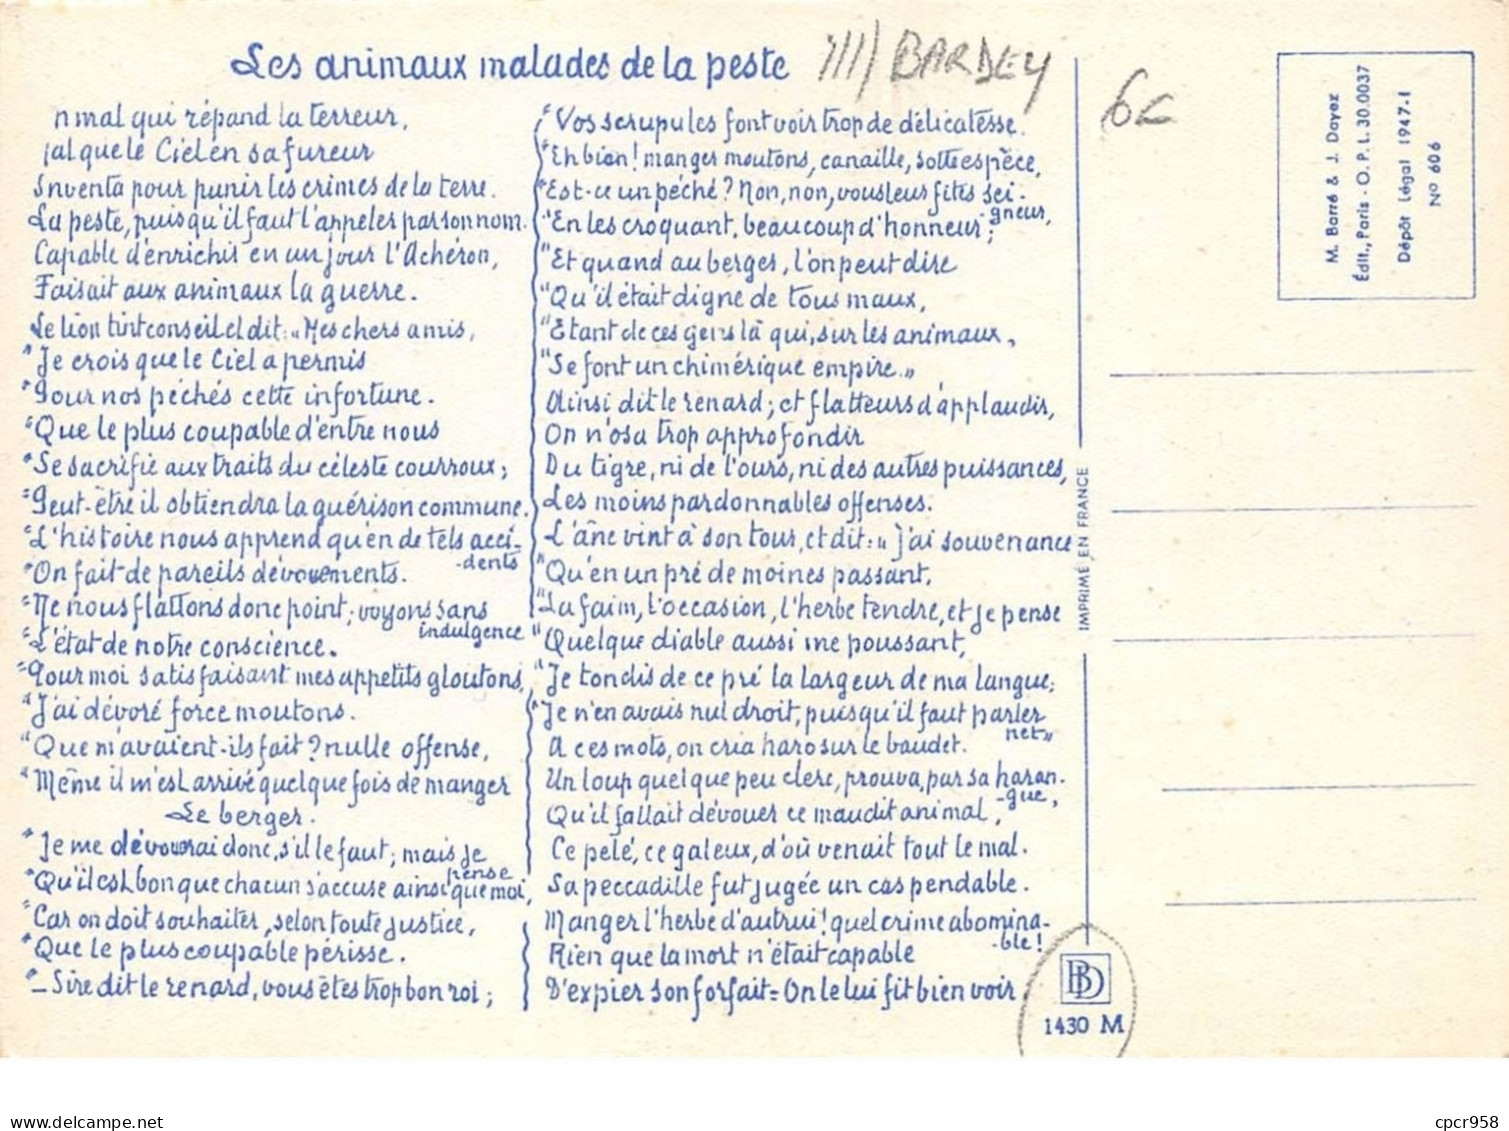 Les animaux malades de la peste
III/ BARDEY
6€
n mal qui répand la terreur,
al que le Ciel en sa fureur
Inventa pour punir les crimes de la terre.
La peste, puisqu'il faut l'appeler par son nom.
Capable d'enrichir en un jour l'Achéron,
Faisait aux animaux la guerre.
Le lion tint conseil et dit : "Mes chers amis,
"Je crois que le Ciel a permis
"Pour nos péchés cette infortune.
"Que le plus coupable d'entre nous
"Se sacrifie aux traits du céleste courroux ;
"Peut-être il obtiendra la guérison commune.
"L'histoire nous apprend qu'en de tels acci-
-dents
"On fait de pareils dévouements.
"Ne nous flattons donc point ; voyons sans
indulgence
"L'état de notre conscience.
"Pour moi satisfaisant mes appetits gloutons,
"J'ai dévoré force moutons.
"Que m'avaient-ils fait ? nulle offense,
"Même il m'est arrivé quelque fois de manger
Le berger.
"Je me dévouerai donc, s'il le faut ; mais je
pense
"Qu'il est bon que chacun s'accuse ainsi que moi,
"Car on doit souhaiter, selon toute justice,
"Que le plus coupable périsse.
"_ Sire dit le renard, vous êtes trop bon roi ;
"Vos scrupules font voir trop de délicatesse.
"Eh bien ! manger moutons, canaille, sotte espèce,
"Est-ce un péché ? Non, non, vous leur fites Sei-
-gneur,
"En les croquant, beaucoup d'honneur ;
"Et quand au berger, l'on peut dire
"Qu'il était digne de tous maux,
"Etant de ces gens là qui, sur les animaux,
"Se font un chimérique empire"
Ainsi dit le renard ; et flatteurs d'applaudir,
On n'osa trop approfondir
Du tigre, ni de l'ours, ni des autres puissances,
Les moins pardonnables offenses.
L'âne vint à son tour, et dit : "J'ai souvenance
"Qu'en un pré de moines passant,
"La faim, l'occasion, l'herbe tendre, et je pense
"Quelque diable aussi me poussant,
"Je tondis de ce pré la largeur de ma langue ;
"Je n'en avais nul droit, puisqu'il faut parler
net"
A ces mots, on cria haro sur le baudet.
Un loup quelque peu clerc, prouva, par sa haran-
-gue,
Qu'il fallait dévouer ce maudit animal,
Ce pelé, ce galeux, d'où venait tout le mal.
Sa peccadille fut jugée un cas pendable.
Manger l'herbe d'autrui ! quel crime abomina-
-ble !
Rien que la mort n'était capable
D'expier son forfait = On le lui fit bien voir.
IMPRIMÉ EN FRANCE
M. Barré & J. Dayez
Édit., Paris - O. P. I. 30.0037
Dépôt Légal 1947-I
N° 606
BD
1430 M
cpcr958